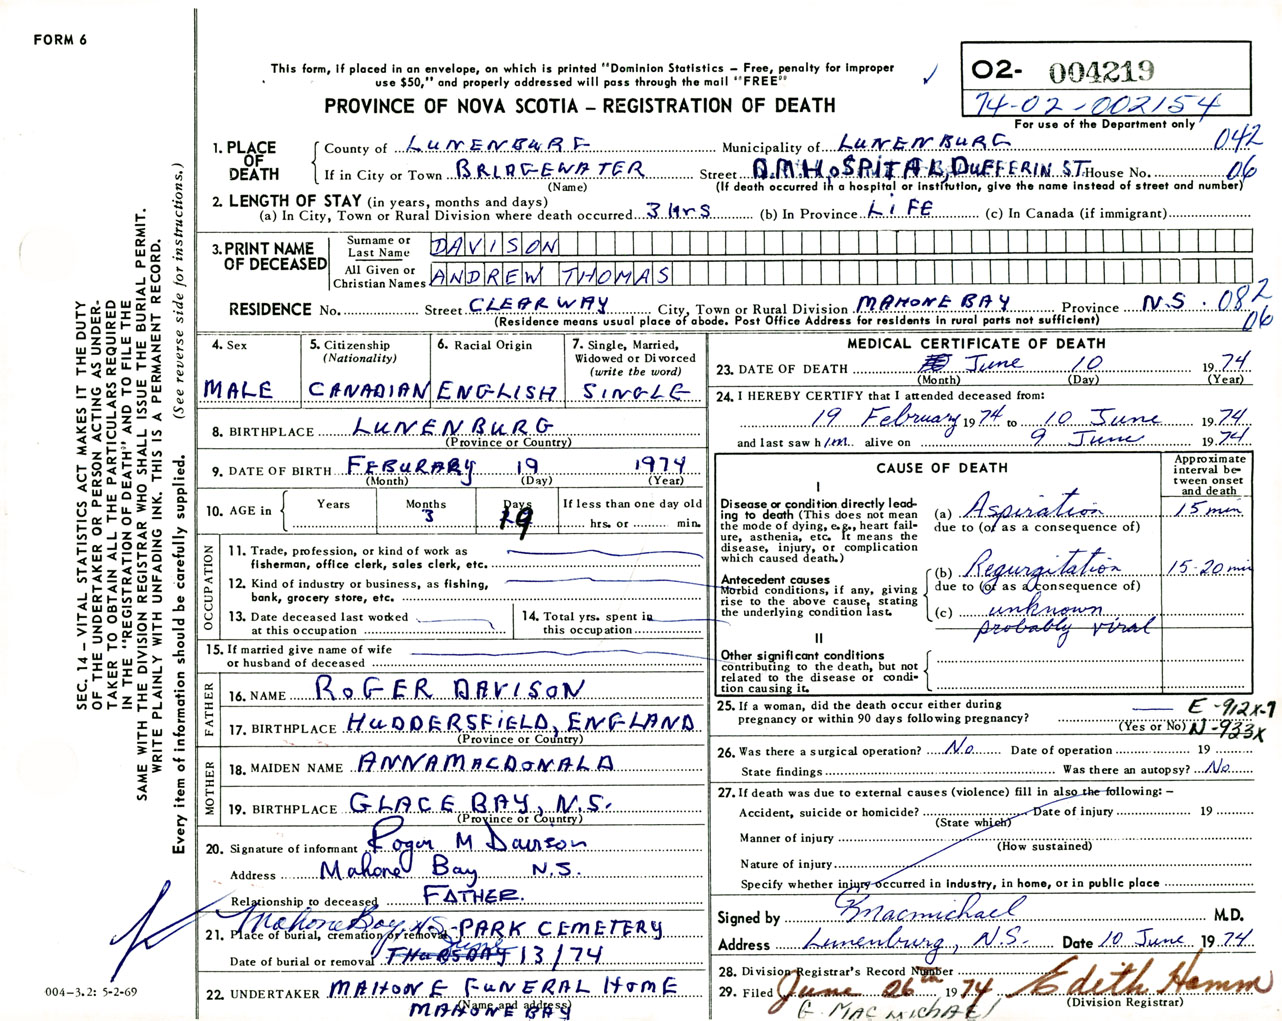 FORM 6
This form, if placed in an envelope, on which is printed "Dominion Statistics – Free, penalty for improper
use $50," and properly addressed will pass through the mail "FREE"
PROVINCE OF NOVA SCOTIA – REGISTRATION OF DEATH
O2- 004219
74-02-002154
For use of the Department only
1. PLACE OF DEATH
County of LUNENBURG Municipality of LUNENBURG 042
If in City or Town BRIDGEWATER Street D.M.HOSPITAL, DUFFERIN ST. House No. 06
(Name) (If death occurred in a hospital or institution, give the name instead of street and number)
2. LENGTH OF STAY (in years, months and days)
(a) In City, Town or Rural Division where death occurred 3 Hrs (b) In Province LIFE (c) In Canada (if immigrant)
3. PRINT NAME OF DECEASED
Surname or Last Name DAVISON
All Given or Christian Names ANDREW THOMAS
RESIDENCE No. Street CLEARWAY City, Town or Rural Division MAHONE BAY Province N.S. 082
(Residence means usual place of abode. Post Office Address for residents in rural parts not sufficient) 06
4. Sex MALE
5. Citizenship (Nationality) CANADIAN
6. Racial Origin ENGLISH
7. Single, Married, Widowed or Divorced (write the word) SINGLE
8. BIRTHPLACE LUNENBURG
(Province or Country)
9. DATE OF BIRTH FEBURARY 19 1974
(Month) (Day) (Year)
10. AGE in Years Months 3 Days 19 If less than one day old
hrs. or min.
OCCUPATION
11. Trade, profession, or kind of work as
fisherman, office clerk, sales clerk, etc.
12. Kind of industry or business, as fishing,
bank, grocery store, etc.
13. Date deceased last worked
at this occupation
14. Total yrs. spent in
this occupation
15. If married give name of wife
or husband of deceased
FATHER
16. NAME ROGER DAVISON
17. BIRTHPLACE HUDDERSFIELD, ENGLAND
(Province or Country)
MOTHER
18. MAIDEN NAME ANNAMACDONALD
19. BIRTHPLACE GLACE BAY, N.S.
(Province or Country)
20. Signature of informant Roger M Davison
Address Mahone Bay N.S.
Relationship to deceased FATHER.
Mahone Bay, N.S. - PARK CEMETERY
21. Place of burial, cremation or removal
June
Date of burial or removal THURSDAY 13/74
22. UNDERTAKER MAHONE FUNERAL HOME
(Name and address)
MAHONE BAY
MEDICAL CERTIFICATE OF DEATH
23. DATE OF DEATH June 10 1974
(Month) (Day) (Year)
24. I HEREBY CERTIFY that I attended deceased from:
19 February 1974 to 10 June 1974
and last saw him alive on 9 June 1974
CAUSE OF DEATH
Approximate interval between onset and death
I
Disease or condition directly leading to death (This does not mean the mode of dying, e.g., heart failure, asthenia, etc. It means the disease, injury, or complication which caused death.)
(a) Aspiration 15 min
due to (or as a consequence of)
Antecedent causes
Morbid conditions, if any, giving rise to the above cause, stating the underlying condition last.
(b) Regurgitation 15-20 min
due to (or as a consequence of)
(c) unknown
probably viral
II
Other significant conditions
contributing to the death, but not related to the disease or condition causing it.
25. If a woman, did the death occur either during
pregnancy or within 90 days following pregnancy?
(Yes or No)
E-912X-7
N-933X
26. Was there a surgical operation? No Date of operation 19
State findings Was there an autopsy? No
27. If death was due to external causes (violence) fill in also the following: –
Accident, suicide or homicide? Date of injury 19
(State which)
Manner of injury
(How sustained)
Nature of injury
Specify whether injury occurred in industry, in home, or in public place
Signed by Macmichael M.D.
Address Lunenburg, N.S. Date 10 June 1974
28. Division Registrar's Record Number
29. Filed June 26th 1974 Edith Hamm
(Division Registrar)
G. MACMICHAEL
SEC. 14 – VITAL STATISTICS ACT MAKES IT THE DUTY
OF THE UNDERTAKER OR PERSON ACTING AS UNDER-
TAKER TO OBTAIN ALL THE PARTICULARS REQUIRED
IN THE "REGISTRATION OF DEATH" AND TO FILE THE
SAME WITH THE DIVISION REGISTRAR WHO SHALL ISSUE THE BURIAL PERMIT.
WRITE PLAINLY WITH UNFADING INK. THIS IS A PERMANENT RECORD.
Every item of information should be carefully supplied. (See reverse side for instructions.)
004-3.2: 5-2-69